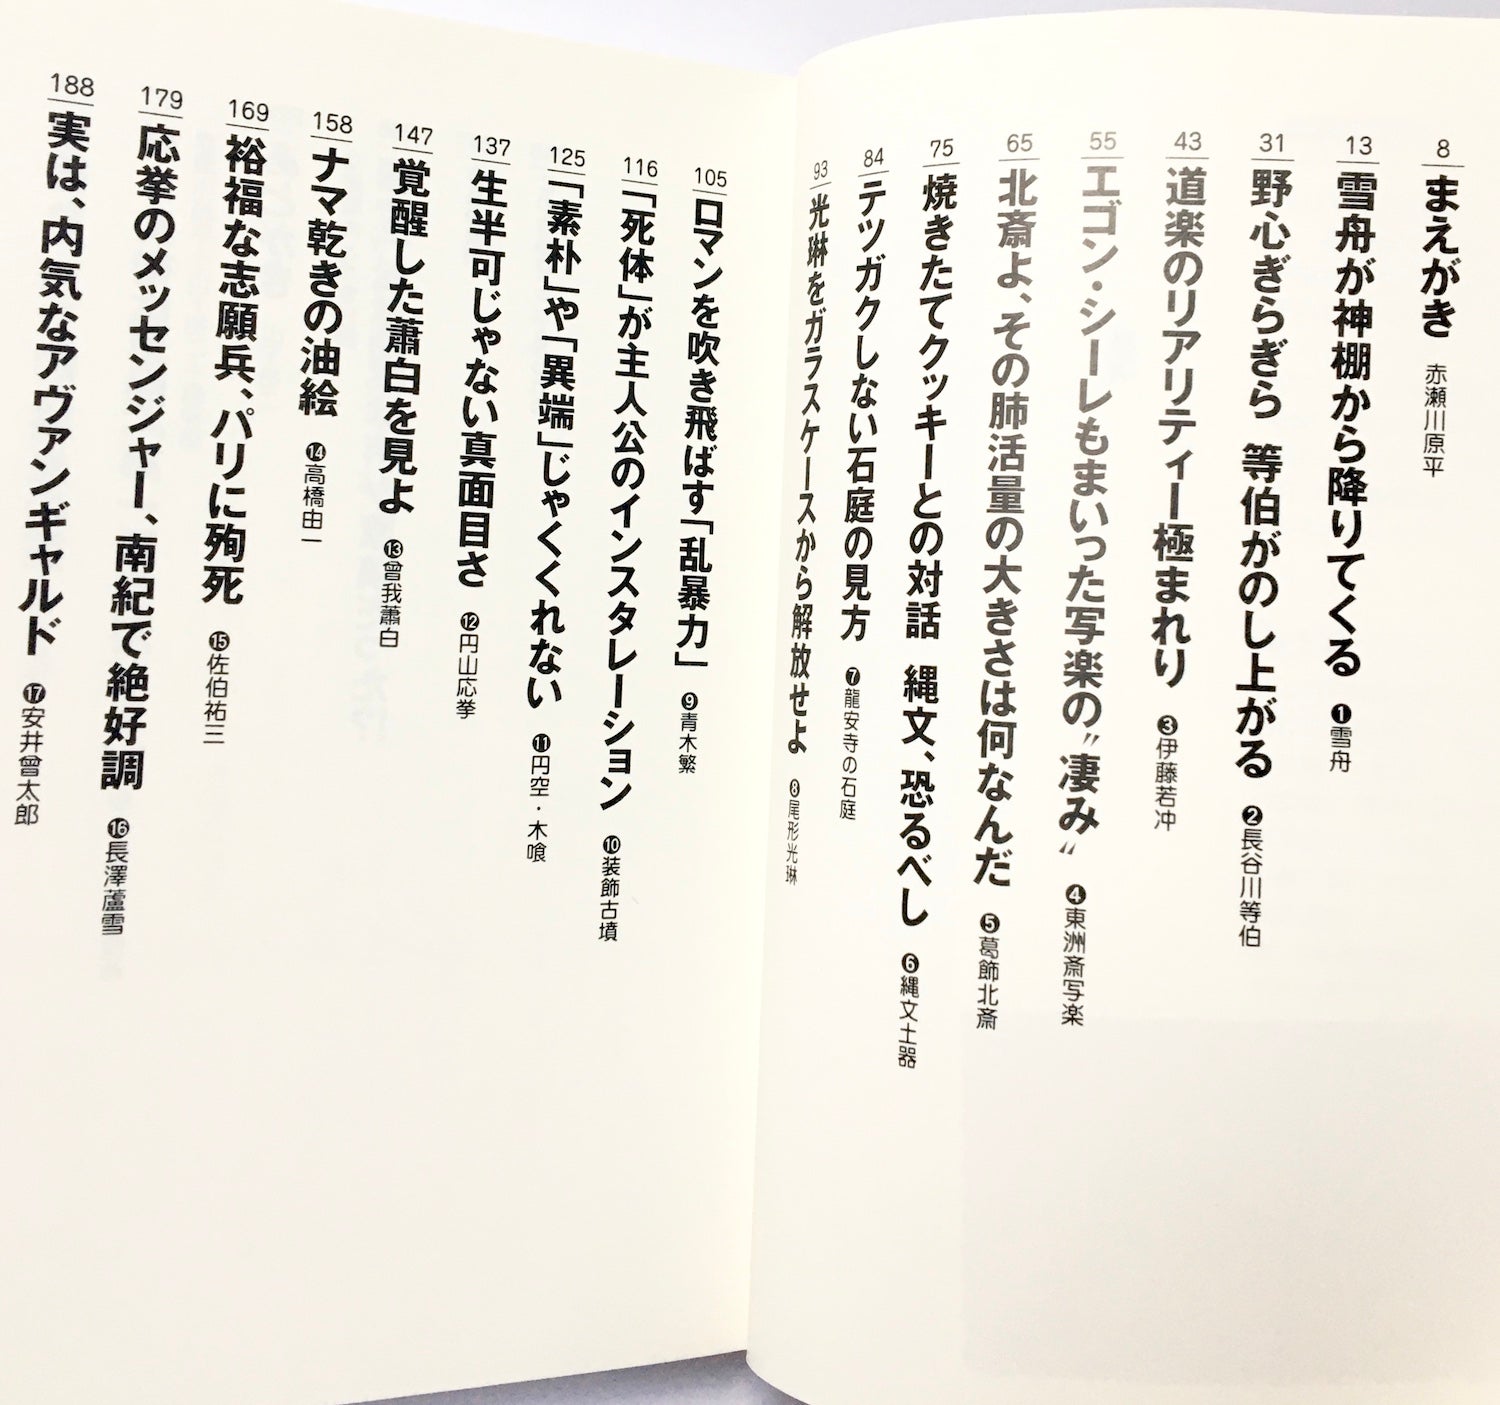 8 まえがき 赤瀬川原平
13 雪舟が神棚から降りてくる ❶雪舟
31 野心ぎらぎら 等伯がのし上がる ❷長谷川等伯
43 道楽のリアリティー極まれり ❸伊藤若冲
55 エゴン・シーレもまいった写楽の〝凄み〟 ❹東洲斎写楽
65 北斎よ、その肺活量の大きさは何なんだ ❺葛飾北斎
75 焼きたてクッキーとの対話 縄文、恐るべし ❻縄文土器
84 テツガクしない石庭の見方 ❼龍安寺の石庭
93 光琳をガラスケースから解放せよ ❽尾形光琳
105 ロマンを吹き飛ばす「乱暴力」 ❾青木繁
116 「死体」が主人公のインスタレーション ❿装飾古墳
125 「素朴」や「異端」じゃくくれない ⓫円空・木喰
137 生半可じゃない真面目さ ⓬円山応挙
147 覚醒した蕭白を見よ ⓭曾我蕭白
158 ナマ乾きの油絵 ⓮高橋由一
169 裕福な志願兵、パリに殉死 ⓯佐伯祐三
179 応挙のメッセンジャー、南紀で絶好調 ⓰長澤蘆雪
188 実は、内気なアヴァンギャルド ⓱安井曾太郎